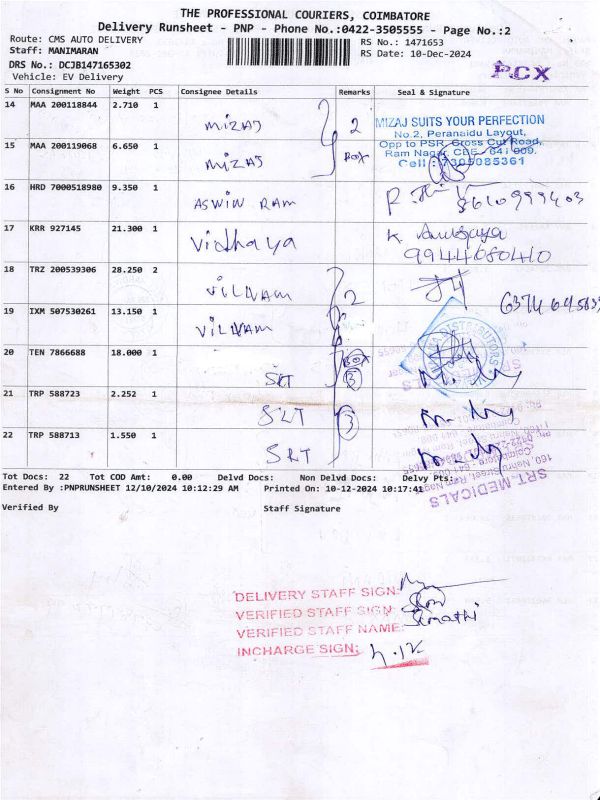 THE PROFESSIONAL COURIERS, COIMBATORE
Delivery Runsheet - PNP - Phone No.:0422-3505555 - Page No.:2
Route: CMS AUTO DELIVERY
Staff: MANIMARAN
DRS No.: DCJB147165302
Vehicle: EV Delivery
RS No.: 1471653
RS Date: 10-Dec-2024
PCX
S No Consignment No Weight PCS Consignee Details Remarks Seal & Signature
14 MAA 200118844 2.710 1 MIZAJ 2
MIZAJ SUITS YOUR PERFECTION
No.2, Peranaidu Layout,
Opp to PSR, Cross Cut Road,
Ram Nagar, CBE - 641 009.
Cell : 7305085361
15 MAA 200119068 6.650 1 MIZAJ BOX
16 HRD 7000518980 9.350 1 ASWIN RAM 8610999403
17 KRR 927145 21.300 1 Vidhaya K
9944680410
18 TRZ 200539306 28.250 2 VILVAM 2
19 IXM 507530261 13.150 1 VILVAM
DISTRIBUTORS
20 TEN 7866688 18.000 1 SRT BOX 3
21 TRP 588723 2.252 1 SRT 3
22 TRP 588713 1.550 1 SRT
SRT MEDICALS
Tot Docs: 22 Tot COD Amt: 0.00 Delvd Docs: Non Delvd Docs: Delvy Pts:
Entered By :PNPRUNSHEET 12/10/2024 10:12:29 AM Printed On: 10-12-2024 10:17:41
Verified By Staff Signature
DELIVERY STAFF SIGN:
VERIFIED STAFF SIGN:
VERIFIED STAFF NAME:
INCHARGE SIGN: